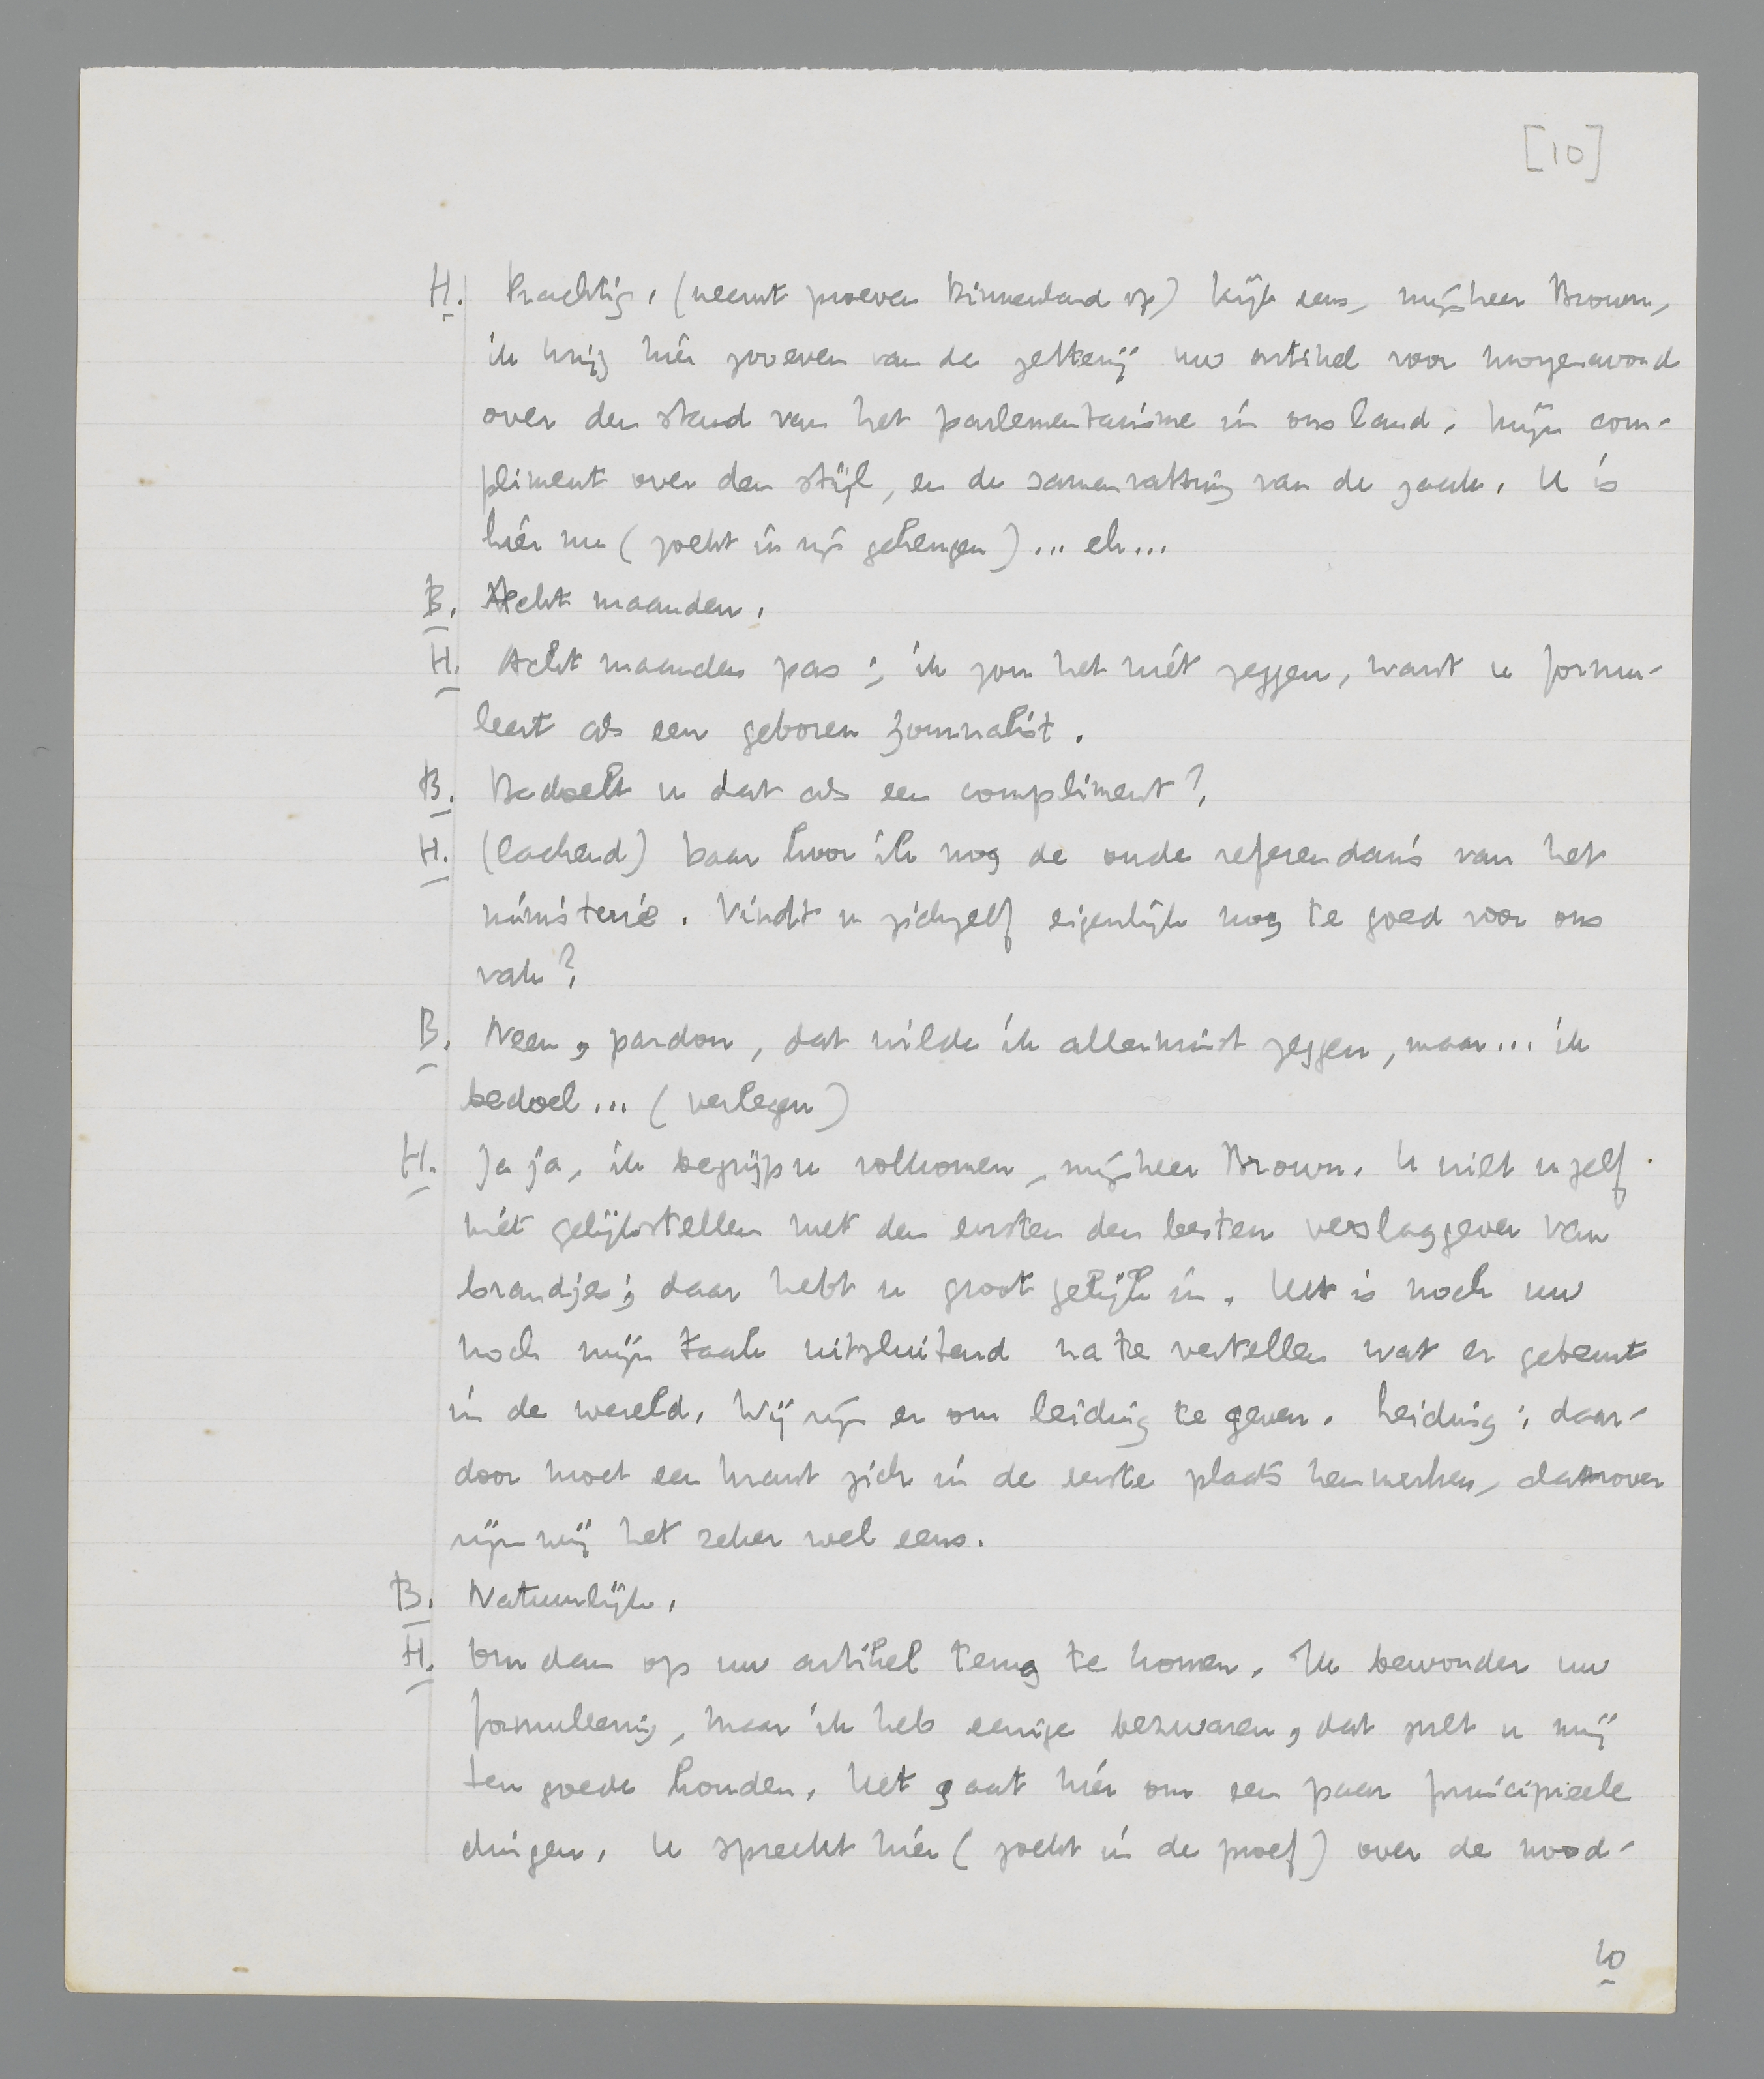 [10]
H. Prachtig. (neemt proeven Binnenland op) Kijk eens, mijnheer Brown,
ik krijg hier proeven van de zetterij uw artikel voor morgenavond
over den stand van het parlementarisme in ons land. Mijn com-
pliment over den stijl, en de samenvatting van de zaak. U is
hier nu (zoekt in zijn geheugen) ... eh...
B. Acht maanden.
H. Acht maanden pas; ik zou het niet zeggen, want u formu-
leert als een geboren journalist.
B. Bedoelt u dat als een compliment?
H. (lachend) Daar hoor ik nog de oude referendaris van het
ministerie. Vindt u zichzelf eigenlijk nog te goed voor ons
vak?
B. Neen, pardon, dat wilde ik allerminst zeggen, maar... ik
bedoel... (verlegen)
H. Ja ja, ik begrijp u volkomen, mijnheer Brown. U wilt uzelf
niet gelijkstellen met den eersten den besten verslaggever van
brandjes; daar hebt u groot gelijk in. Het is noch uw
noch mijn taak uitsluitend na te vertellen wat er gebeurt
in de wereld. Wij zijn er om leiding te geven. Leiding; daar-
door moet een krant zich in de eerste plaats kenmerken, daarover
zijn wij het zeker wel eens.
B. Natuurlijk.
H. Om dan op uw artikel terug te komen. Ik bewonder uw
formuleering, maar ik heb eenige bezwaren, dat zult u mij
ten goede houden. Het gaat hier om een paar principieele
dingen. U spreekt hier (zoekt in de proef) over de nood-
10